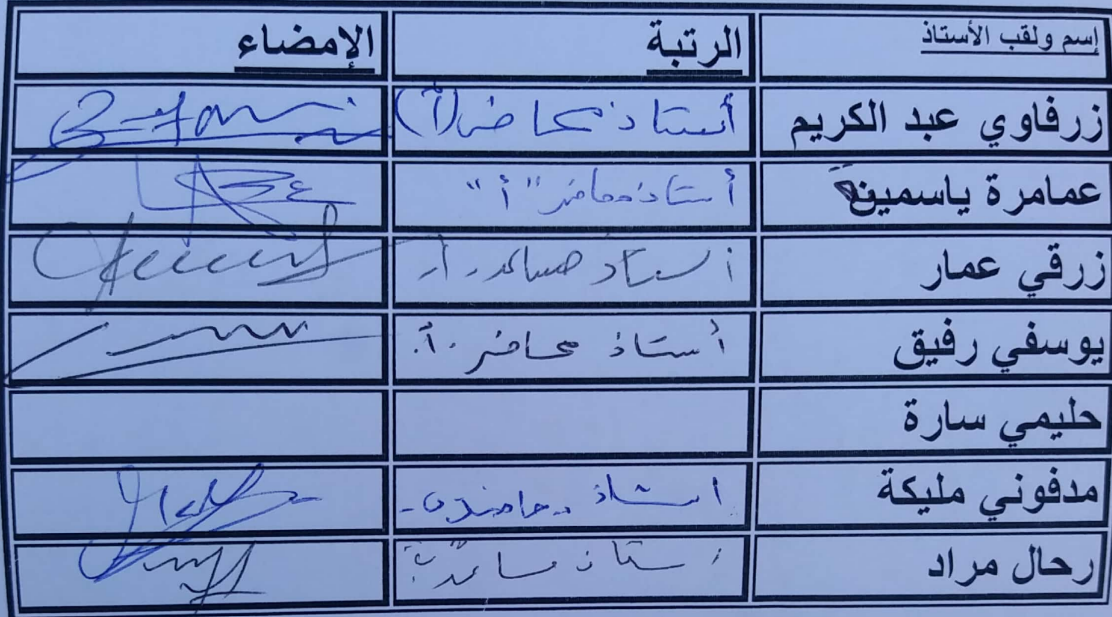 إسم ولقب الأستاذ الرتبة الإمضاء
زرفاوي عبد الكريم أستاذ محاضر (أ)
عمامرة ياسمينة أستاذ محاضر "أ"
زرقي عمار أستاذ مساعد .أ.
يوسفي رفيق أستاذ محاضر .أ.
حليمي سارة
مدفوني مليكة استاذ محاضر
رحال مراد أستاذ مساعد ب